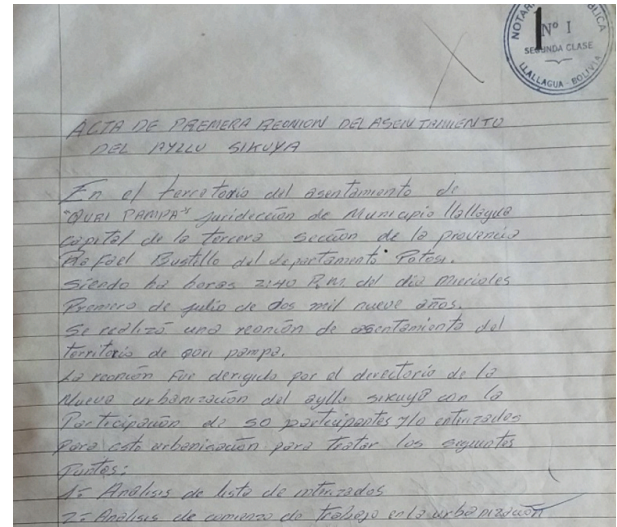 NOTARIA PUBLICA
Nº I
SEGUNDA CLASE
LLALLAGUA - BOLIVIA
ACTA DE PREMERA REONION DEL ASENTAMIENTO
DEL AYLLU SIKUYA
En el tercetorio del asentamiento de
"QURI PAMPA" juridección de Municipio llallagua
capital de la tercera sección de la provencia
Rafael Bustillo del departamento Potosi.
Siendo ha horas 2:40 P.m. del dia Miercoles
Premero de julio de dos mil nueve años.
Se realizó una reonión de asentamiento del
territorio de qori pampa.
La reonión fue derigido por el derectorio de la
Nueva urbanización del ayllu sikuya con la
Particip­ación de 50 partecipantes y/o
para este urbanicación para tratar los seguntes
Puntos:
1= Analisis de lista de
2= Analisis de comienzo de trabajo en la urbanización